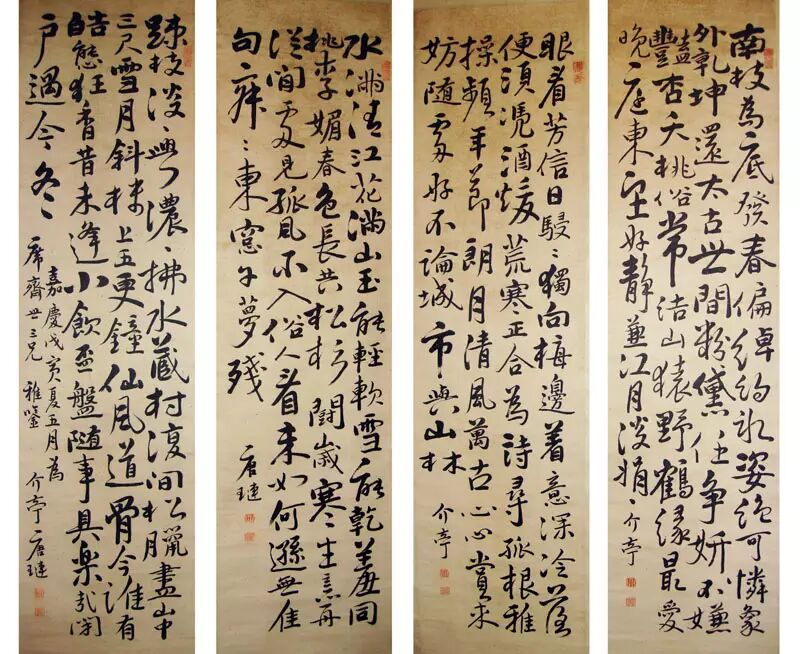 南枝為底發春偏綽約氷姿絕可憐象
外乾坤還太古世間粉黛任争妍不嫌
杏夭桃俗常结山猿野鶴緣最愛
晚庭東望好靜兼江月淡娟娟介亭
眼看芳信日駸駸獨向梅邊着意深冷蕊
便須凴酒煖荒寒正合為詩尋孤根雅
操頻年節朗月清風萬古心心賞未
妨随處好不論城市與山林
介亭
水滿清江花滿山玉能輕軟雪能乾羞同
桃李媚春色長共松杉鬭歲寒生意再
從閒處見孤風不入俗人看来如何遜無佳
句寂寂東窓午夢殘
唐璉
踈枝淡興濃濃拂水藏村復間松臘盡山中
三尺雪月斜樓上五更鐘仙風道骨今誰有
皓態狂香昔未逢小飲盃盤随事具樂哉閒
戶過今冬
嘉慶戊寅夏五月為
席齋世三兄雅鑒介亭唐璉